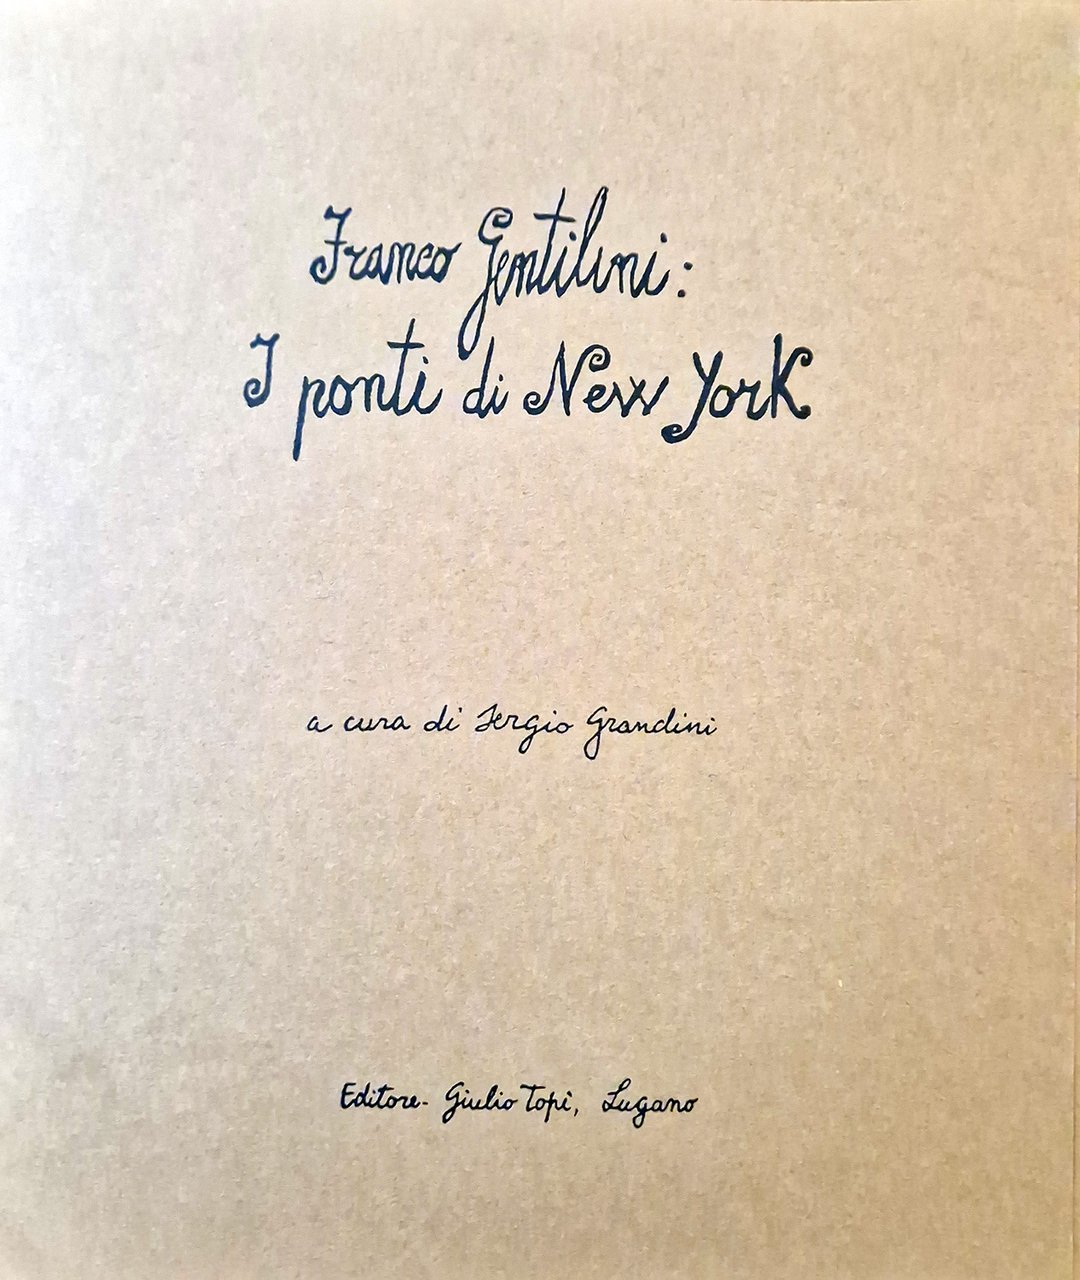 Franco Gentilini:
I ponti di New York
a cura di Sergio Grandini
Editore - Giulio Topi, Lugano